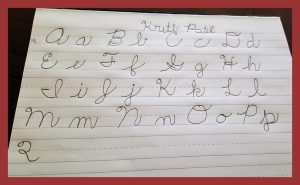 Kruti Patel
A a B b C c D d
E e F f G g H h
I i J j K k L l
M m N n O o P p
Q